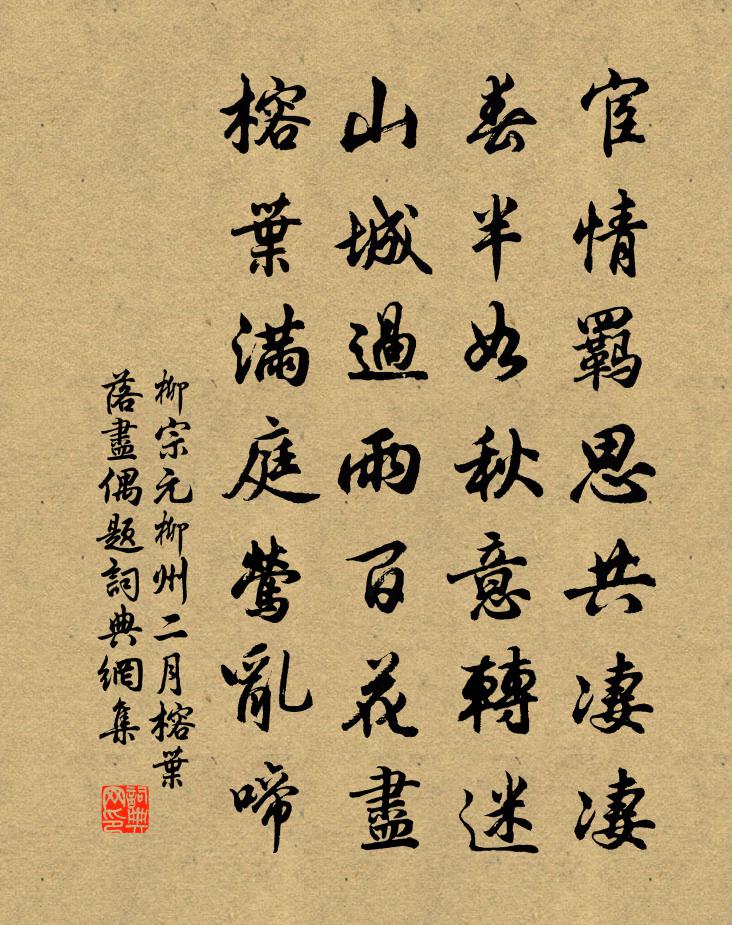 宦情羈思共凄凄
春半如秋意轉迷
山城過雨百花盡
榕葉滿庭鶯亂啼
柳宗元柳州二月榕葉
落盡偶題詞典網集
詞典
网印